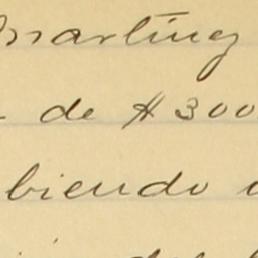 martinez
de $300
biendo